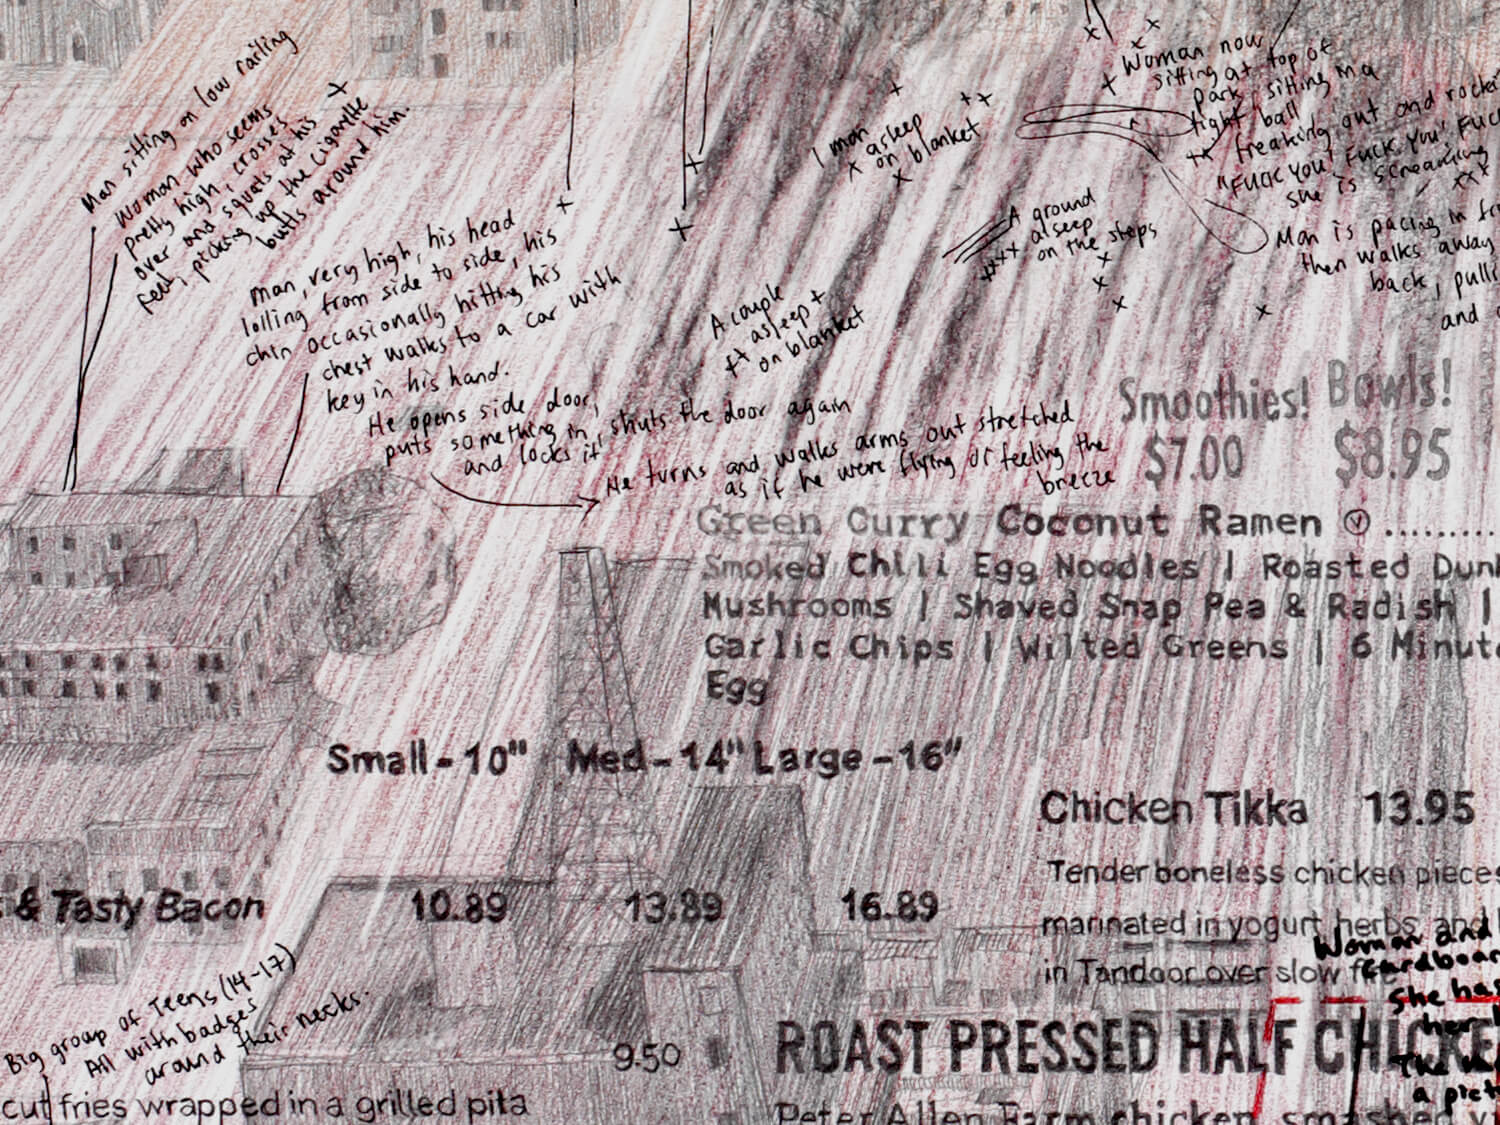 Man sitting on low railing
Woman who seems
pretty high, crosses
over and squats at his
feet, picking up the cigarette
butts around him.
Man, very high, his head
lolling from side to side, his
chin occasionally hitting his
chest walks to a car with
key in his hand.
He opens side door,
puts something in, shuts the door again
and locks it
He turns and walks arms out stretched
as if he were flying or feeling the
breeze
1 man
asleep
on blanket
A couple
asleep
on blanket
A ground
alseep
on the steps
Woman now
sitting at top of
park, sitting in a
tight ball
freaking out and
"FUCK YOU! FUCK YOU! FUC
she is screaming
Man is pacing in
then walks away
back, pulli
and
Smoothies! Bowls!
$7.00 $8.95
Green Curry Coconut Ramen Ⓥ..........
Smoked Chili Egg Noodles | Roasted Dun
Mushrooms | Shaved Snap Pea & Radish |
Garlic Chips | Wilted Greens | 6 Minut
Egg
Small - 10" Med - 14" Large - 16"
Chicken Tikka 13.95
Tender boneless chicken pieces
marinated in yogurt herbs and
in Tandoor over slow
& Tasty Bacon 10.89 13.89 16.89
Woman and
cardboar
She has
her
The
a pict
Big group of Teens (14-17)
All with badges
around their necks.
9.50
ROAST PRESSED HALF CHICKE
cut fries wrapped in a grilled pita
Peter Allen Farm chicken smashed